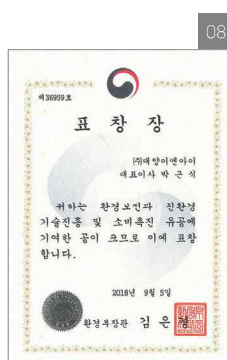 08
제 36959 호
표 창 장
(주)대양이엔아이
대표이사 박 근 식
귀하는 환경보전과 친환경
기술진흥 및 소비촉진 유공에
기여한 공이 크므로 이에 표창
합니다.
2018년 9월 5일
환경부장관 김 은 경